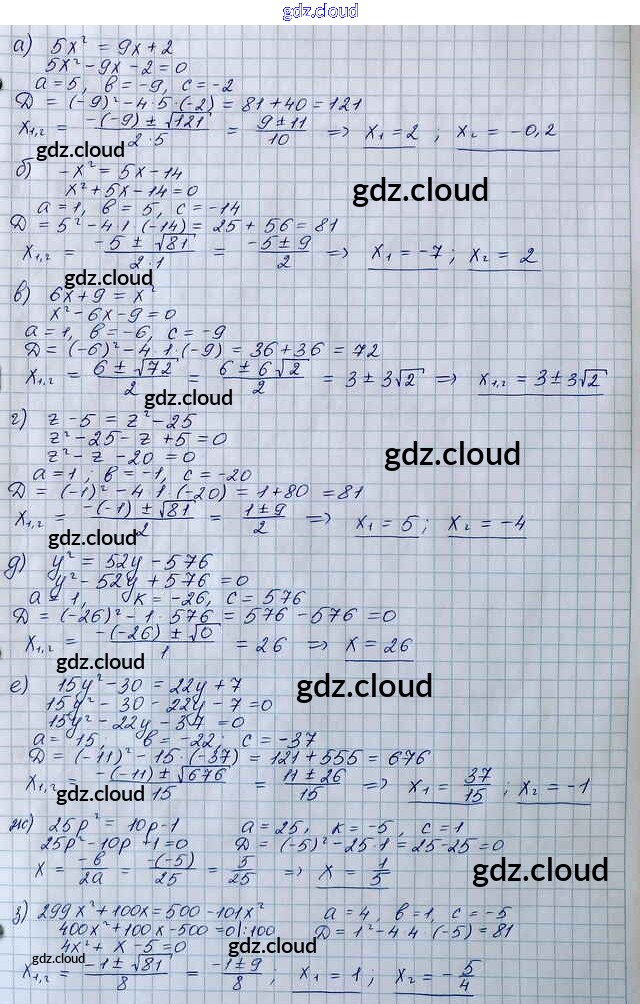 gdz.cloud
а) 5x² = 9x + 2
5x² - 9x - 2 = 0
a = 5, b = -9, c = -2
D = (-9)² - 4·5·(-2) = 81 + 40 = 121
x₁,₂ = (-(-9) ± √121)/(2·5) = (9 ± 11)/10 => x₁ = 2 ; x₂ = -0,2
gdz.cloud
б) -x² = 5x - 14
x² + 5x - 14 = 0
gdz.cloud
a = 1, b = 5, c = -14
D = 5² - 4·1·(-14) = 25 + 56 = 81
x₁,₂ = (-5 ± √81)/(2·1) = (-5 ± 9)/2 => x₁ = -7 ; x₂ = 2
gdz.cloud
в) 6x + 9 = x²
x² - 6x - 9 = 0
a = 1, b = -6, c = -9
D = (-6)² - 4·1·(-9) = 36 + 36 = 72
x₁,₂ = (6 ± √72)/2 = (6 ± 6√2)/2 = 3 ± 3√2 => x₁,₂ = 3 ± 3√2
gdz.cloud
г) z - 5 = z² - 25
z² - 25 - z + 5 = 0
z² - z - 20 = 0
gdz.cloud
a = 1 ; b = -1, c = -20
D = (-1)² - 4·1·(-20) = 1 + 80 = 81
x₁,₂ = (-(-1) ± √81)/2 = (1 ± 9)/2 => x₁ = 5 ; x₂ = -4
gdz.cloud
д) y² = 52y - 576
y² - 52y + 576 = 0
a = 1, k = -26, c = 576
D = (-26)² - 1·576 = 576 - 576 = 0
x₁,₂ = (-(-26) ± √0)/1 = 26 => x = 26
gdz.cloud
е) 15y² - 30 = 22y + 7
gdz.cloud
15y² - 30 - 22y - 7 = 0
15y² - 22y - 37 = 0
a = 15, b = -22; c = -37
D = (-11)² - 15·(-37) = 121 + 555 = 676
x₁,₂ = (-(-11) ± √676)/15 = (11 ± 26)/15 => x₁ = 37/15 ; x₂ = -1
gdz.cloud
ж) 25p² = 10p - 1 a = 25, k = -5, c = 1
25p² - 10p + 1 = 0 D = (-5)² - 25·1 = 25 - 25 = 0
x = -b/2a = -(-5)/25 = 5/25 => x = 1/5
gdz.cloud
з) 299x² + 100x = 500 - 101x² a = 4, b = 1, c = -5
400x² + 100x - 500 = 0 |:100 D = 1² - 4·4·(-5) = 81
4x² + x - 5 = 0
gdz.cloud
gdz.cloud
x₁,₂ = (-1 ± √81)/8 = (-1 ± 9)/8 ; x₁ = 1 ; x₂ = -5/4